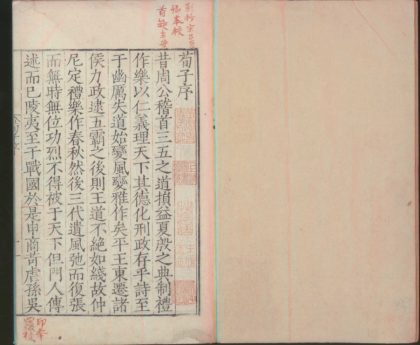 荀子序
昔周公稽首三五之道損益夏殷之典制禮
作樂以仁義理天下其德化刑政存乎詩至
于幽厲失道始變風變雅作矣平王東遷諸
侯力政逮五霸之後則王道不絕如綫故仲
尼定禮樂作春秋然後三代遺風弛而復張
而無時無位功烈不得被于天下但門人傳
述而已陵夷至于戰國於是申商苛虐孫吳